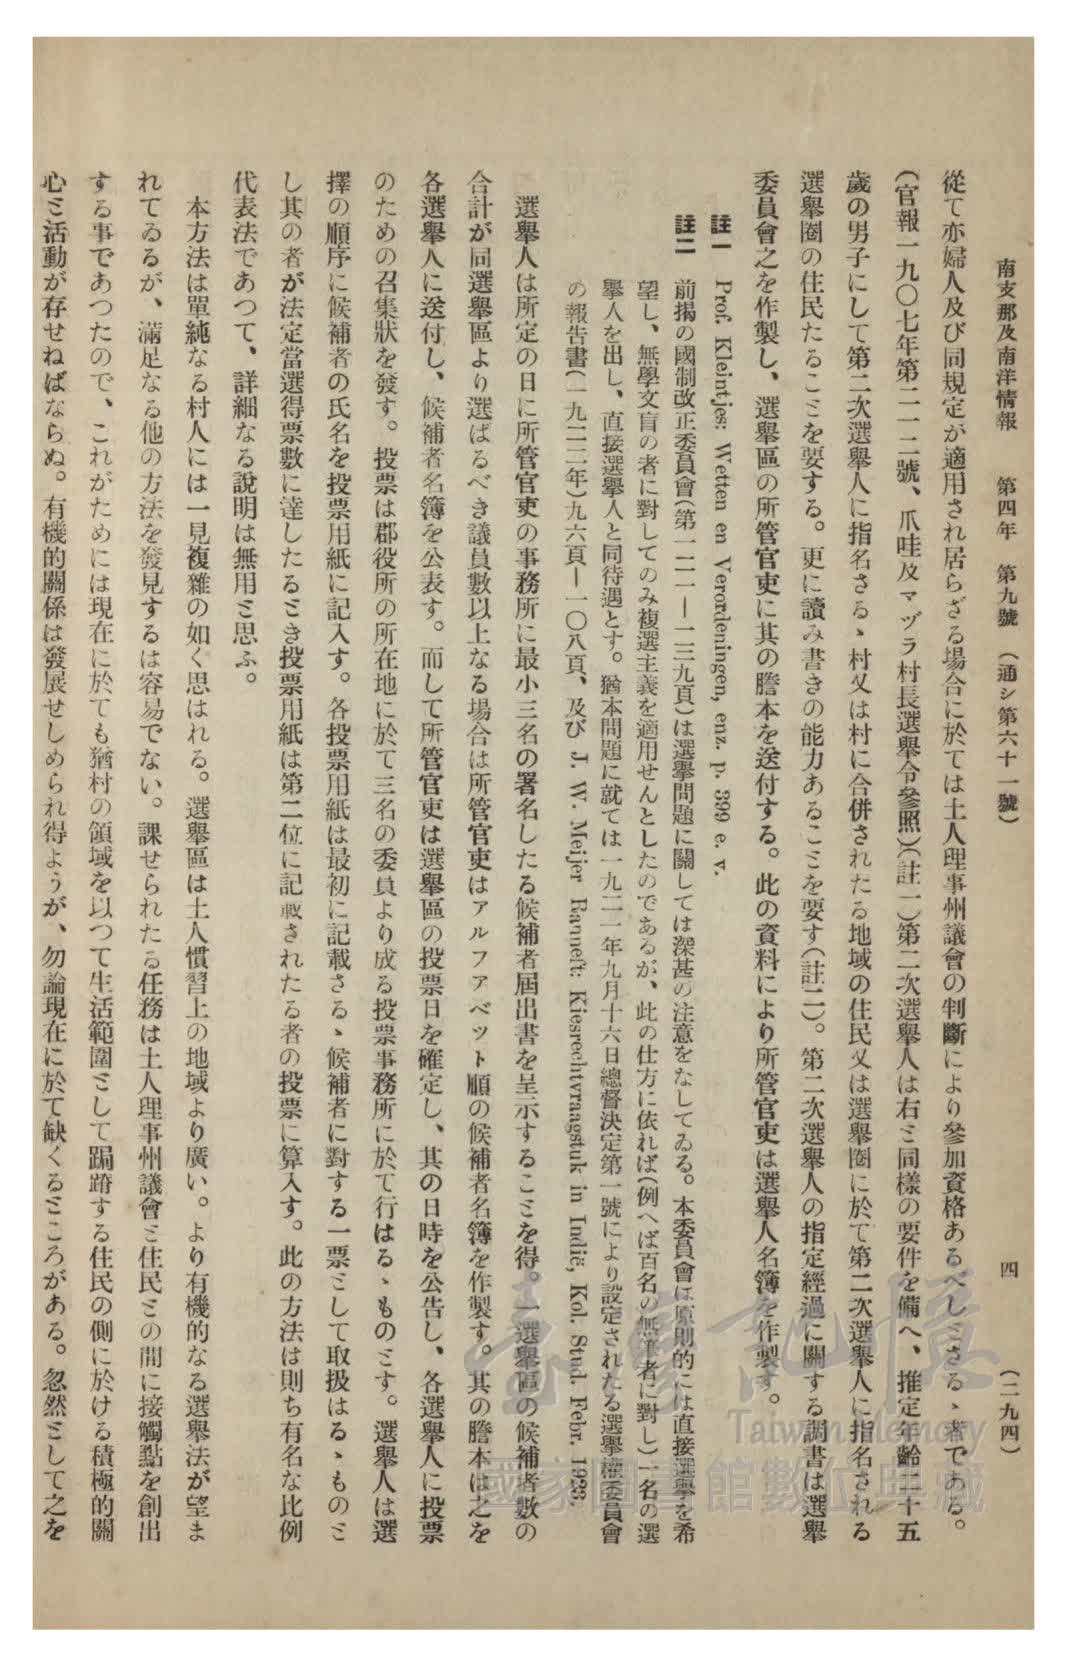 南支那及南洋情報　第四年　第九號　（通シ第六十一號）　四　（二九四）
從て亦婦人及び同規定が適用され居らざる場合に於ては土人理事州議會の判斷により參加資格あるべしとさるゝ者である。
（官報一九〇七年第二一二號、爪哇及マヅラ村長選擧令參照）（註一）第二次選擧人は右と同樣の要件を備へ、推定年齡二十五
歲の男子にして第二次選擧人に指名さるゝ村又は村に合併されたる地域の住民又は選擧圈に於て第二次選擧人に指名される
選擧圈の住民たることを要する。更に讀み書きの能力あることを要す（註二）。第二次選擧人の指定經過に關する調書は選擧
委員會之を作製し、選擧區の所管官吏に其の謄本を送付する。此の資料により所管官吏は選擧人名簿を作製す。
註一　Prof. Kleintjes: Wetten en Verordeningen, enz. p. 399 e. v.
註二　前揭の國制改正委員會（第一二一―一三九頁）は選擧問題に關しては深甚の注意をなしてゐる。本委員會は原則的には直接選擧を希
望し、無學文盲の者に對してのみ複選主義を適用せんとしたのであるが、此の仕方に依れば（例へば百名の無筆者に對し）一名の選
擧人を出し、直接選擧人と同待遇とす。猶本問題に就ては一九二一年九月十六日總督決定第一號により設定されたる選擧權委員會
の報告書（一九二二年）九六頁―一〇八頁、及び J. W. Meijer Ranneft: Kiesrechtvraagstuk in Indië, Kol. Stud. Febr. 1923.
選擧人は所定の日に所管官吏の事務所に最小三名の署名したる候補者屆出書を呈示することを得。一選擧區の候補者數の
合計が同選擧區より選ばるべき議員數以上なる場合は所管官吏はアルファベット順の候補者名簿を作製す。其の謄本は之を
各選擧人に送付し、候補者名簿を公表す。而して所管官吏は選擧區の投票日を確定し、其の日時を公告し、各選擧人に投票
のための召集狀を發す。投票は郡役所の所在地に於て三名の委員より成る投票事務所に於て行はるゝものとす。選擧人は選
擇の順序に候補者の氏名を投票用紙に記入す。各投票用紙は最初に記載さるゝ候補者に對する一票として取扱はるゝものと
し其の者が法定當選得票數に達したるとき投票用紙は第二位に記載されたる者の投票に算入す。此の方法は則ち有名な比例
代表法であつて、詳細なる說明は無用と思ふ。
本方法は單純なる村人には一見複雜の如く思はれる。選擧區は土人慣習上の地域より廣い。より有機的なる選擧法が望ま
れてゐるが、滿足なる他の方法を發見するは容易でない。課せられたる任務は土人理事州議會と住民との間に接觸點を創出
する事であつたので、これがためには現在に於ても猶村の領域を以つて生活範圍として跼蹐する住民の側に於ける積極的關
心と活動が存せねばならぬ。有機的關係は發展せしめられ得ようが、勿論現在に於て缺くるところがある。忽然として之を
臺灣記憶
Taiwan Memory
國家圖書館數位典藏